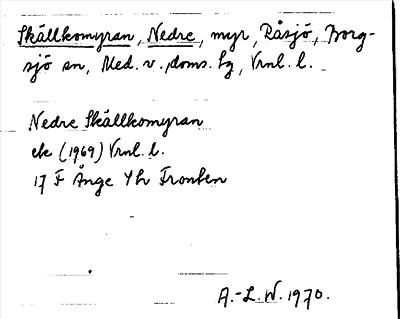 Skällkomyran, Nedre, myr, Råsjö, Borg-
sjö sn, Med. v. doms. lg, Vrnl. l.
Nedre Skällkomyran
ek (1969) Vrnl. l.
17 F Ånge Yh Fronten
A.-L.W. 1970.